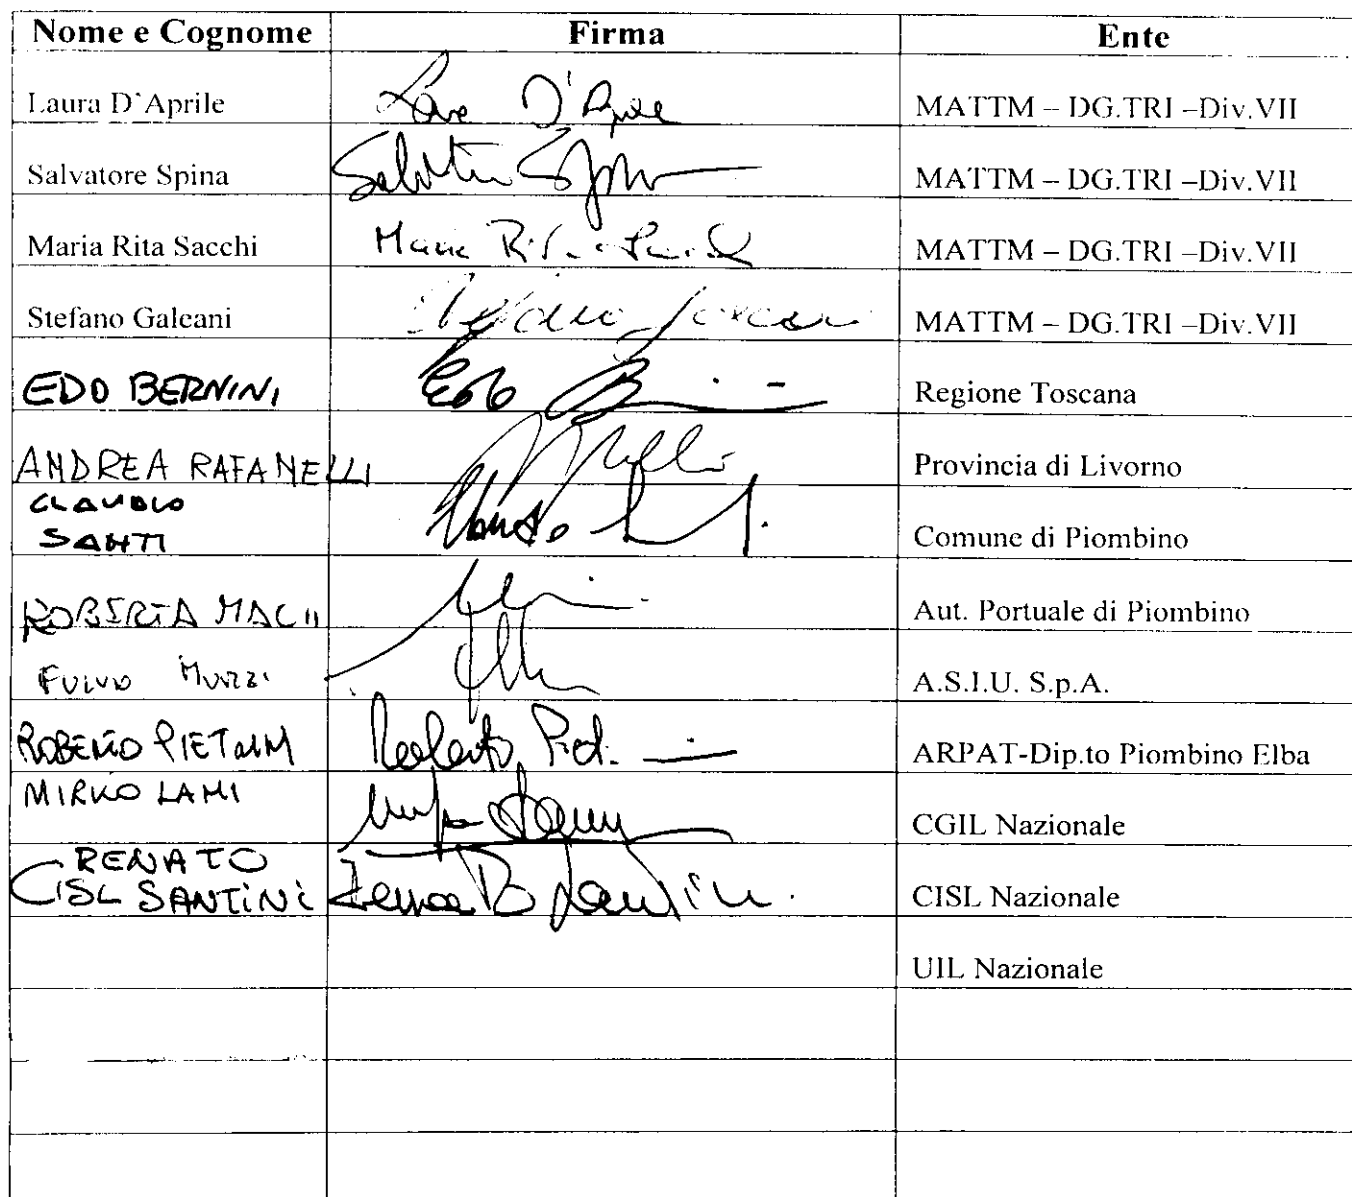 Nome e Cognome Firma Ente
Laura D`Aprile Laura D'Aprile MATTM – DG.TRI –Div.VII
Salvatore Spina Salvatore Spina MATTM – DG.TRI –Div.VII
Maria Rita Sacchi Maria Rita Sacchi MATTM – DG.TRI –Div.VII
Stefano Galeani Stefano MATTM – DG.TRI –Div.VII
EDO BERNINI Edo B Regione Toscana
ANDREA RAFANELLI Provincia di Livorno
CLAUDIO
SANTI Claudio Comune di Piombino
ROBERTA MACII Aut. Portuale di Piombino
FULVIO MURZI A.S.I.U. S.p.A.
ROBERTO Roberto ARPAT-Dip.to Piombino Elba
MIRKO LAMI CGIL Nazionale
RENATO
CISL SANTINI Renato Santini CISL Nazionale
UIL Nazionale